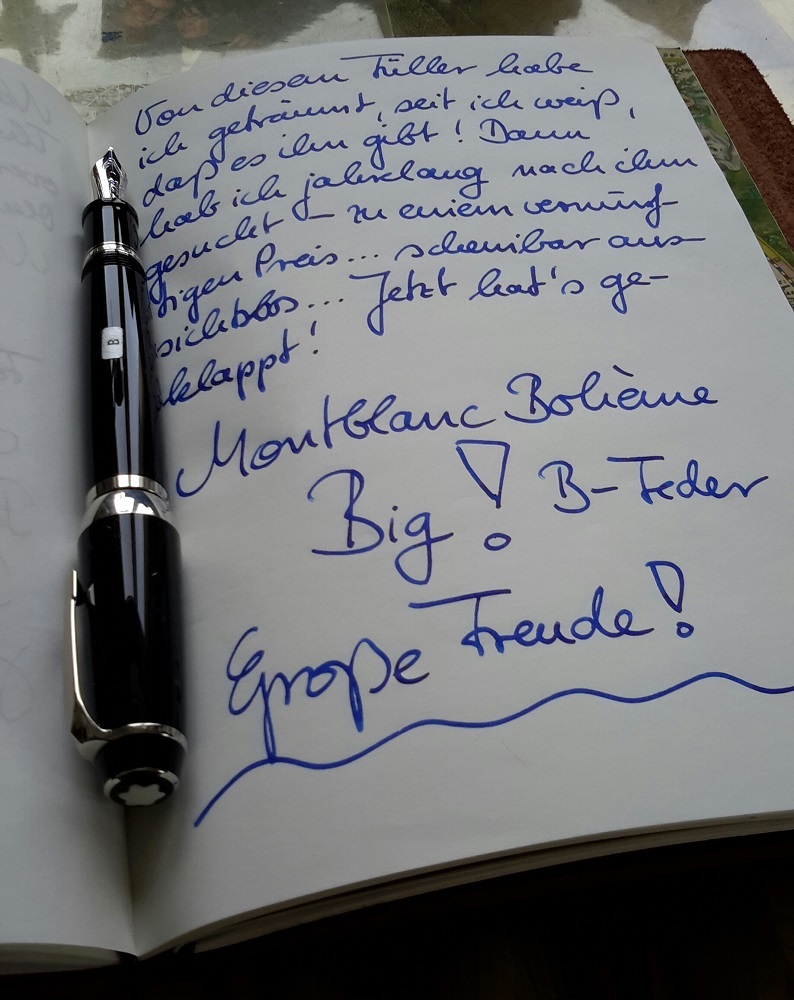 Von diesem Füller habe
ich geträumt, seit ich weiß,
daß es ihn gibt! Dann
hab ich jahrelang nach ihm
gesucht – zu einem vernünf-
tigen Preis... scheinbar aus-
sichtslos... Jetzt hat's ge-
klappt!
Montblanc Bohème
Big! B-Feder
Große Freude!
B